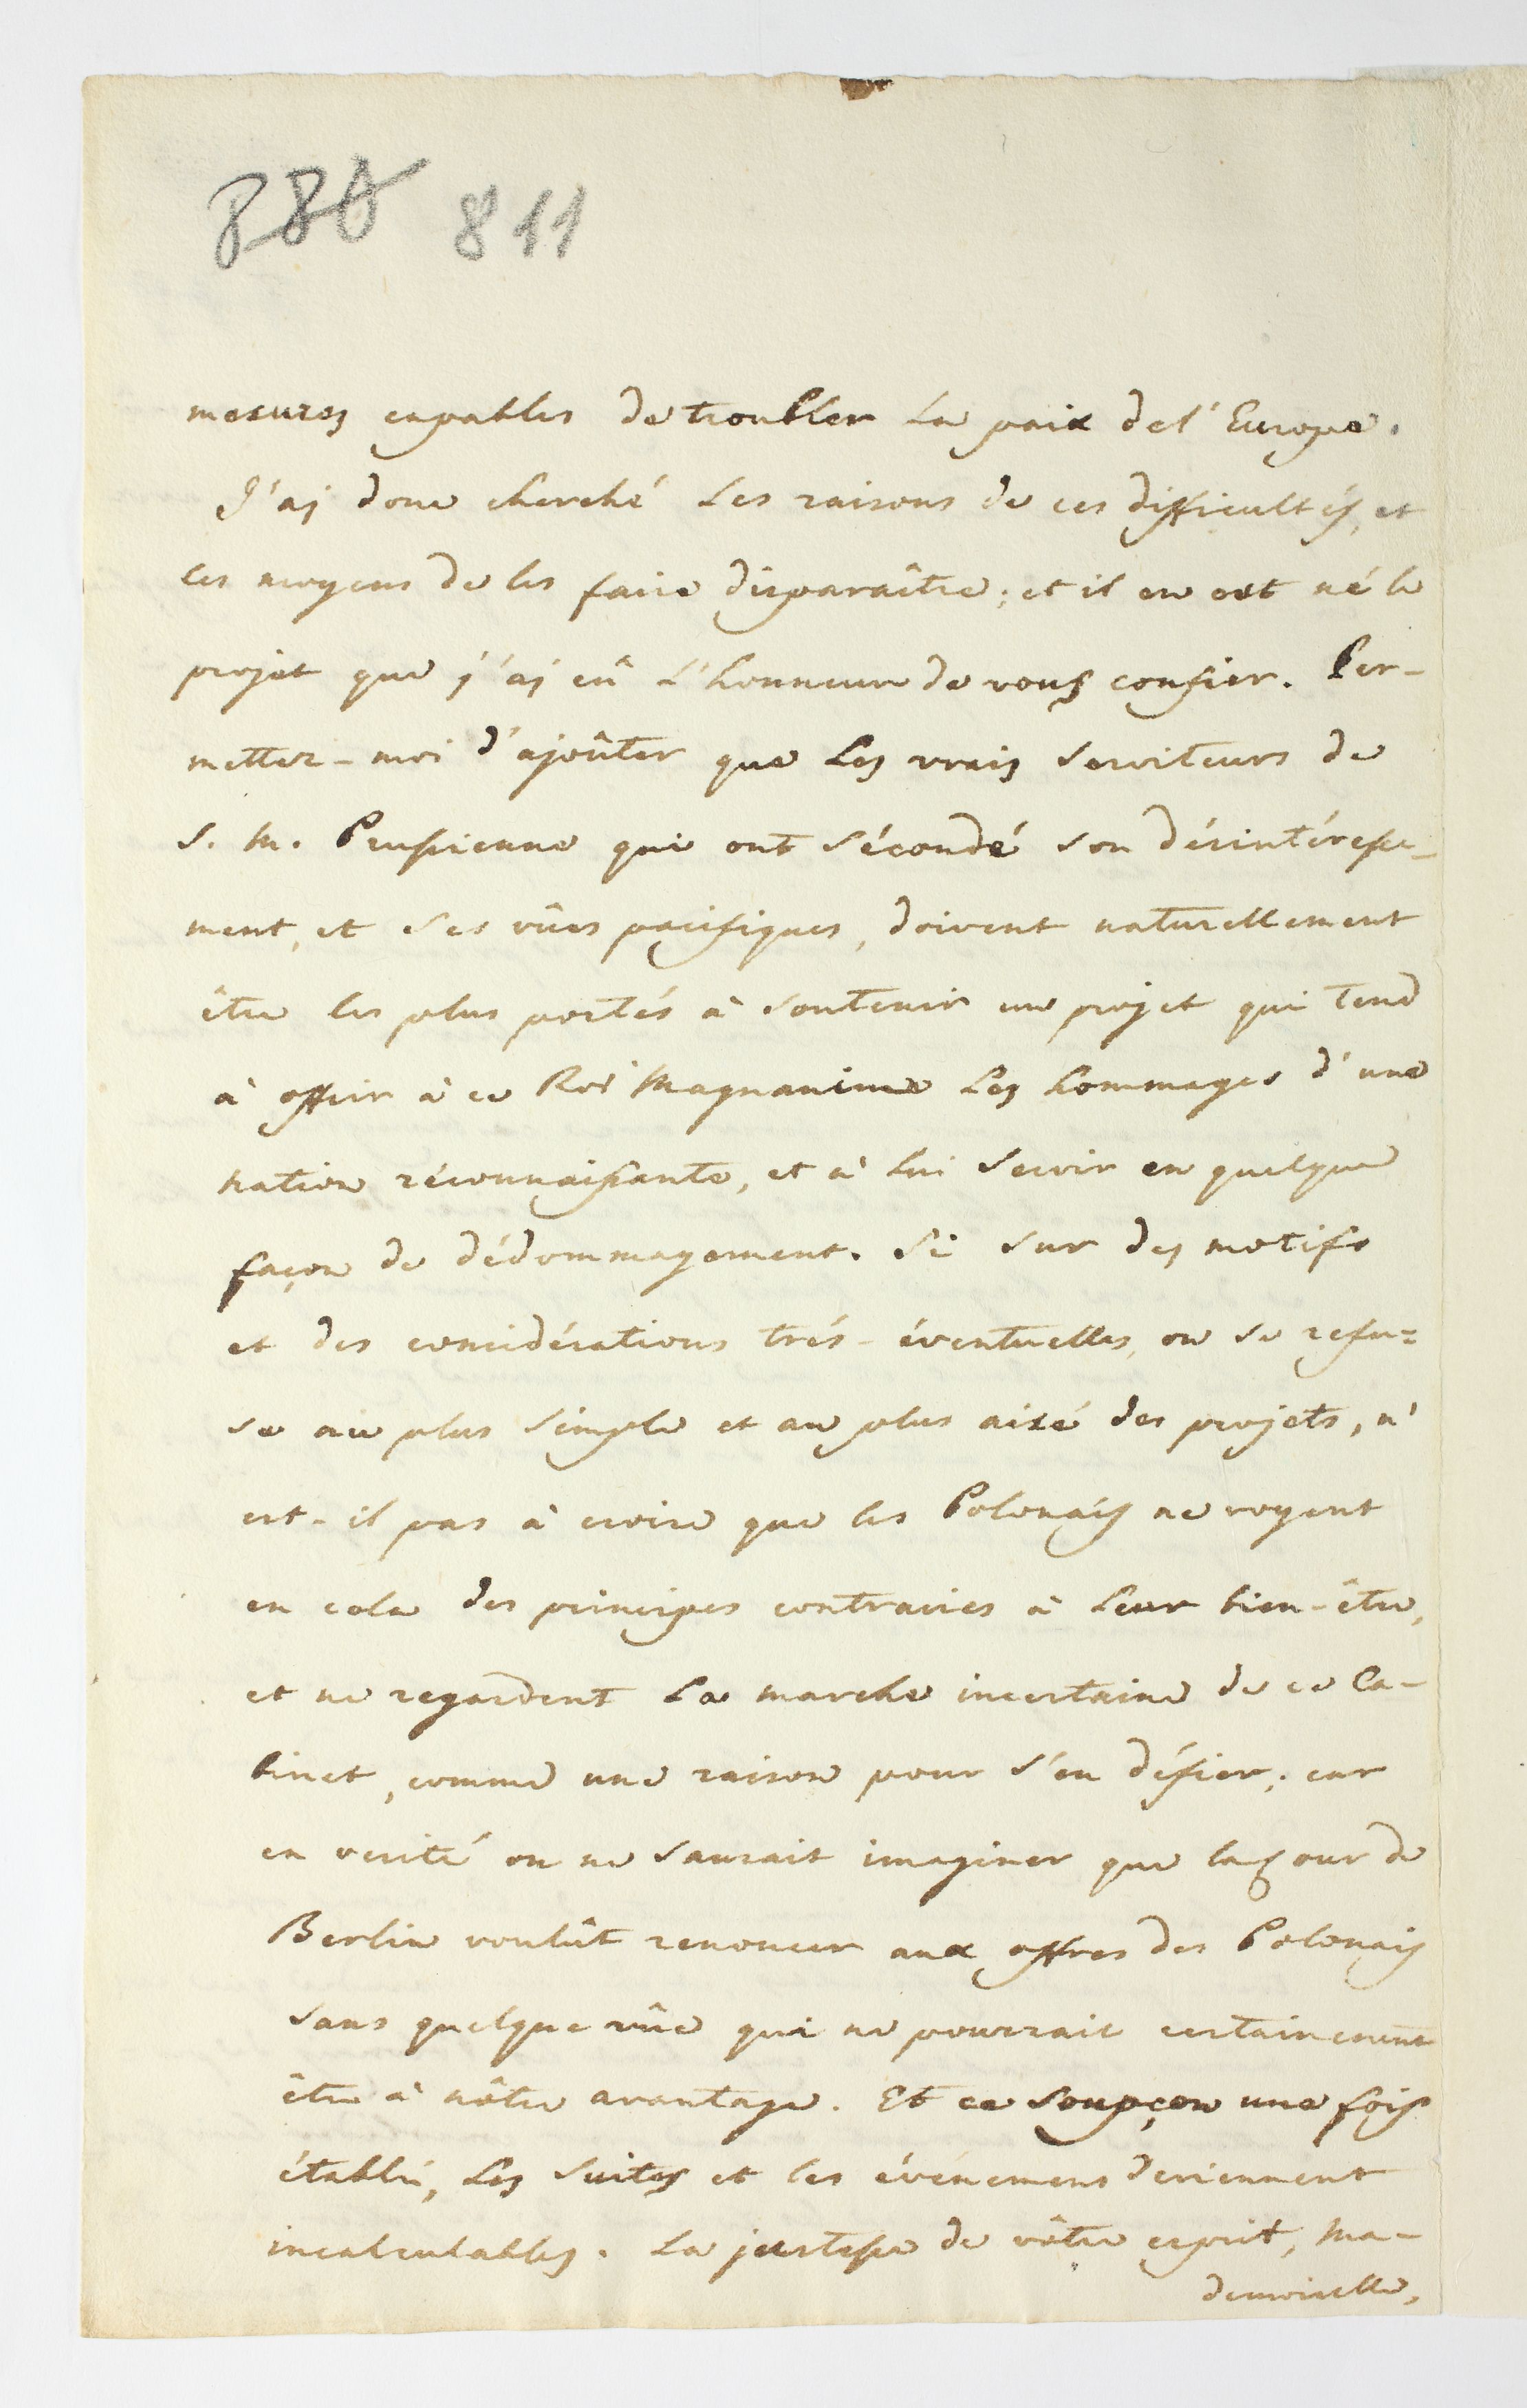 880 811
mesures capables de troubler la paix de l'Europe.
J'ai donc cherché les raisons de ces difficultés, et
les moyens de les faire disparaître; et il en est né le
projet que j'ai eû l'honneur de vous confier. Per-
mettez-moi d'ajoûter que les vrais serviteurs de
S. M. Prussienne qui ont sécondé son désintéresse-
ment, et ses vûes pacifiques, doivent naturellement
être les plus portés à soutenir un projet qui tend
à offrir à ce Roi Magnanime les hommages d'une
nation réconnaissante, et à lui servir en quelque
façon de dédommagement. Si sur des motifs
et des considérations trés-éventuelles, on se refu=
se au plus simple et au plus aisé des projets, n'
est-il pas à croire que les Polonais ne voyent
en cela des principes contraires à leur bien-être,
et ne regardent la marche incertaine de ce Ca-
binet, comme une raison pour s'en défier; car
en verité on ne saurait imaginer que la Cour de
Berlin voulût renoncer aux offres des Polonais
sans quelque vûe qui ne pourrait certainement
être à nôtre avantage. Et ce soupçon une fois
établi, les suites et les événemens deviennent
incalculables. La justesse de vôtre esprit, Ma-
demoiselle,